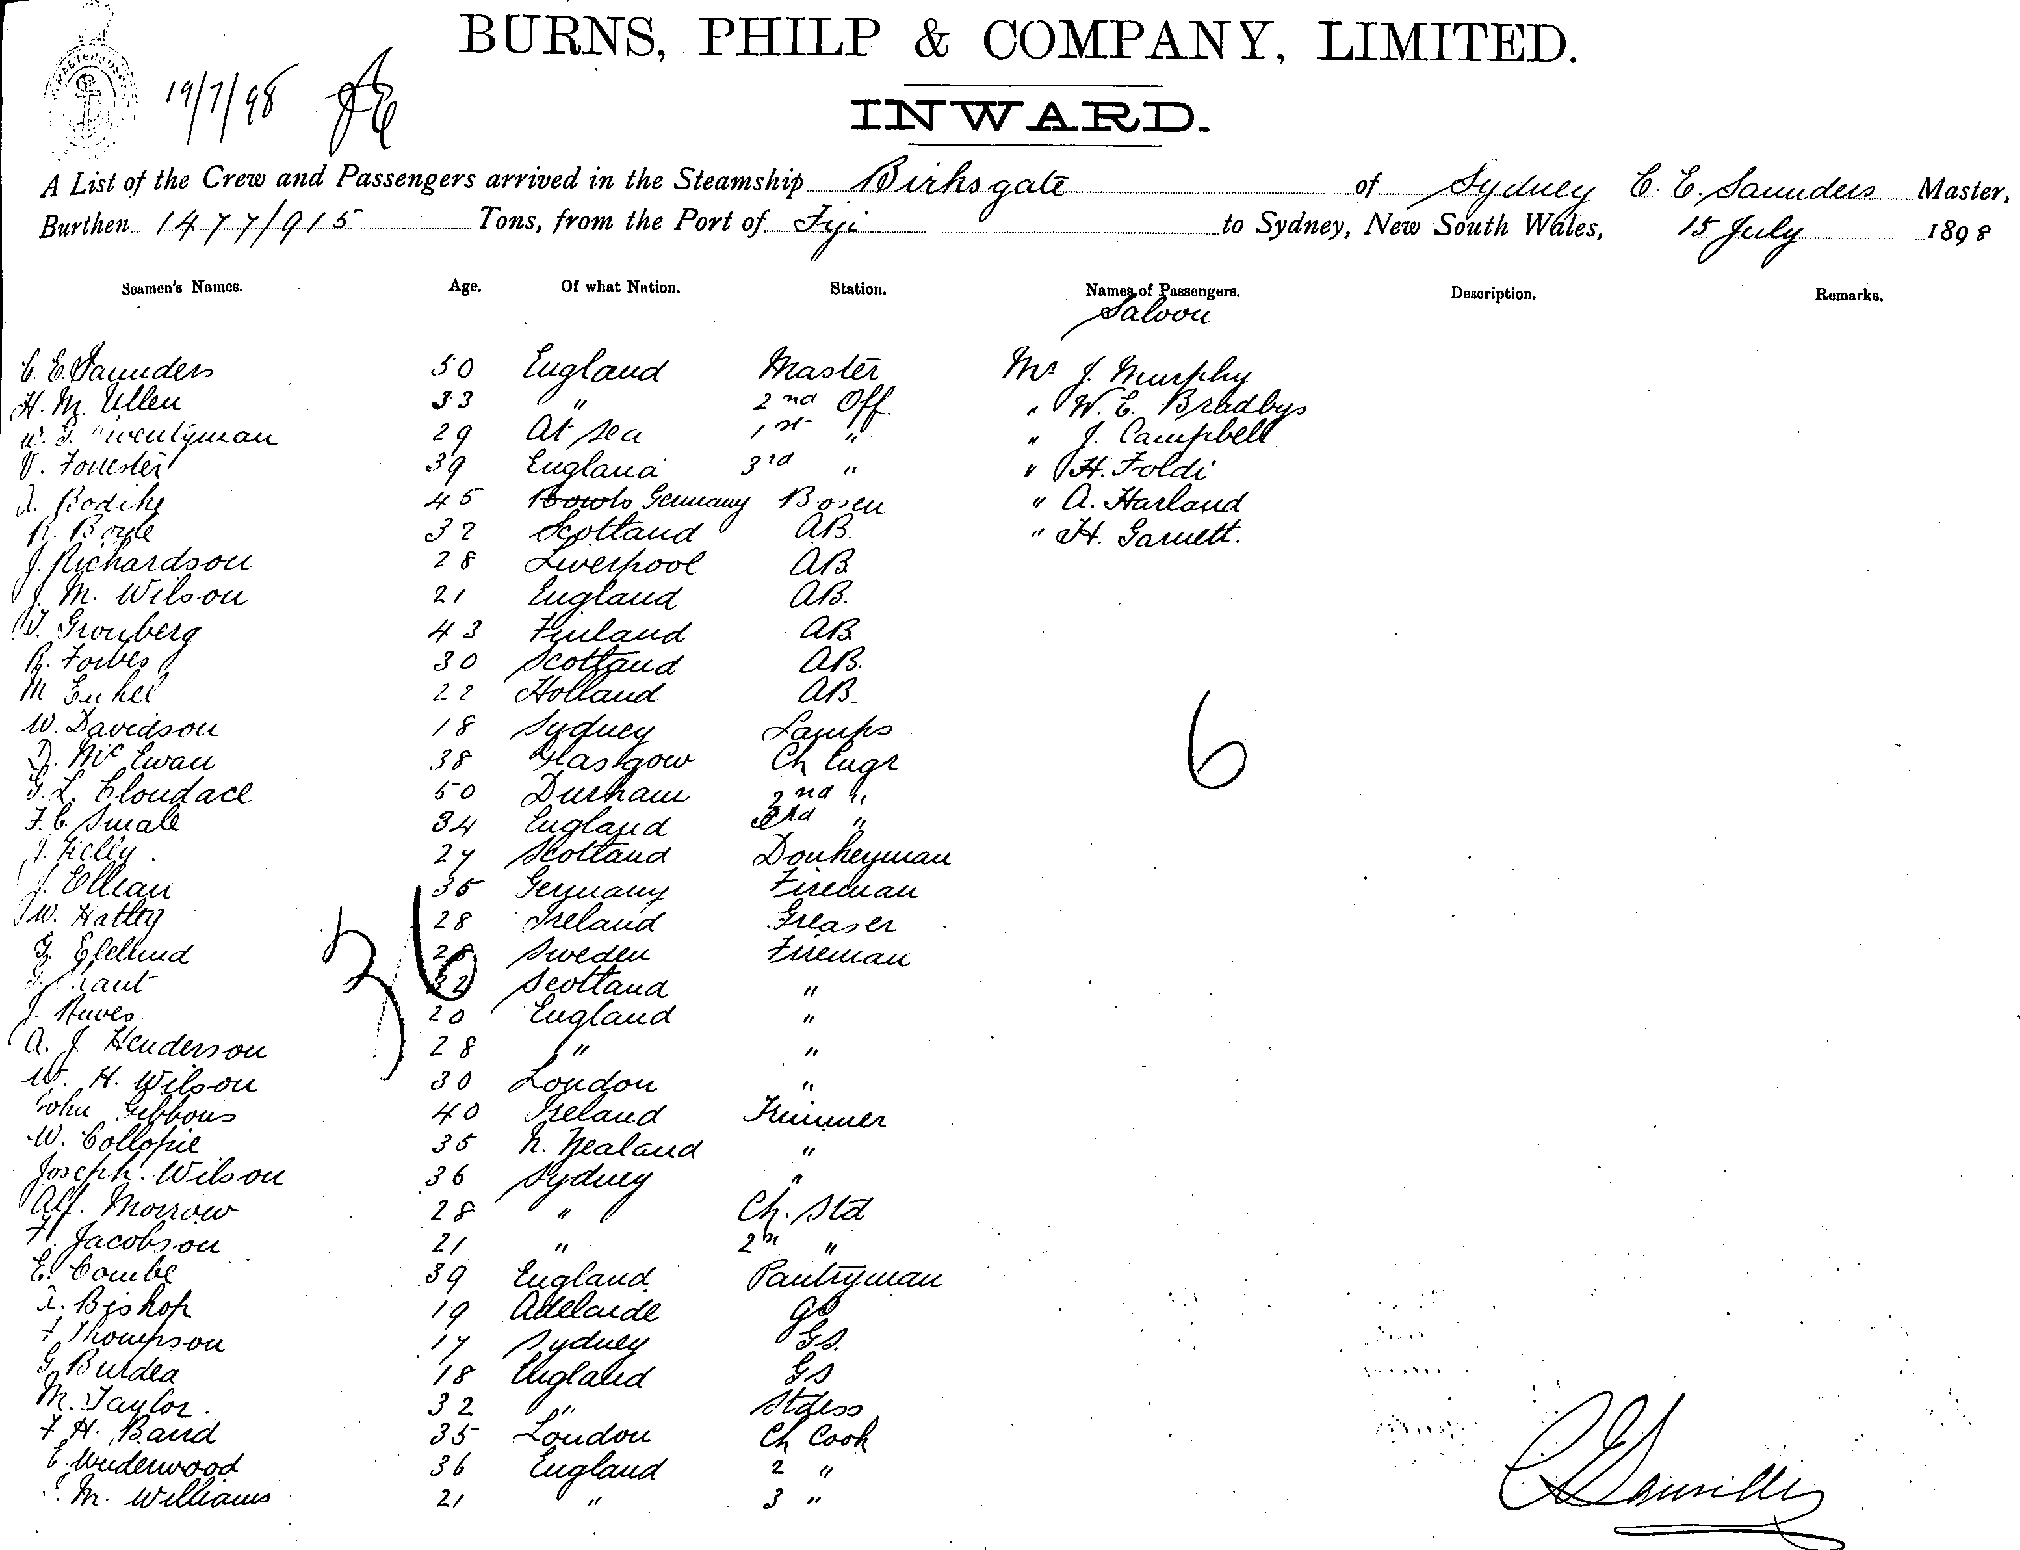 BURNS, PHILP & COMPANY, LIMITED.
19/7/98
INWARD.
A List of the Crew and Passengers arrived in the Steamship Birksgate of Sydney C. E. Saunders Master,
Burthen 1477/915 Tons, from the Port of Fiji to Sydney, New South Wales, 15 July 1898
Seamen's Names. Age. Of what Nation. Station. Names of Passengers. Description. Remarks.
Saloon
C. E. Saunders 50 England Master Mr J. Murphy
H. M. Ullen 33 " 2nd Off " W. E. Bradbys
29 At sea 1st " " J. Campbell
V. Forrester 39 England 3rd " " H. Foldi
45 Germany Bosen " A. Harland
R. Boyle 32 Scotland AB. " H. Garnett.
J. Richardson 28 Liverpool AB
J. M. Wilson 21 England AB.
Gronberg 43 Finland AB
R. Forbes 30 Scotland AB.
M 22 Holland AB.
W. Davidson 18 Sydney Lamps
D. McEwan 38 Glasgow Ch Engr
G. L. Cloudace 50 Durham 2nd "
F. C. Smale 34 England 3rd "
J. Kelly. 27 Scotland Donkeyman
J. Ellean 35 Germany Fireman
W. Hatley 28 Ireland Greaser
28 Sweden Fireman
Grant 32 Scotland "
J. 20 England "
A. J. Henderson 28 " "
W. H. Wilson 30 London "
John Gibbons 40 Ireland Trimmer
W. Collopie 35 N. Zealand "
Joseph. Wilson 36 Sydney "
Alf. Morrow 28 " Ch. Std
F. Jacobson 21 " 2nd "
E. Combe 39 England Pantryman
A. Bishop 19 Adelaide GS
F Thompson 17 Sydney GS.
G. Burdea 18 England GS
M. Taylor. 32 " Stdess
F. H. Band 35 London Ch Cook
C. Underwood 36 England 2 "
M. Williams 21 " 3 "
36
6